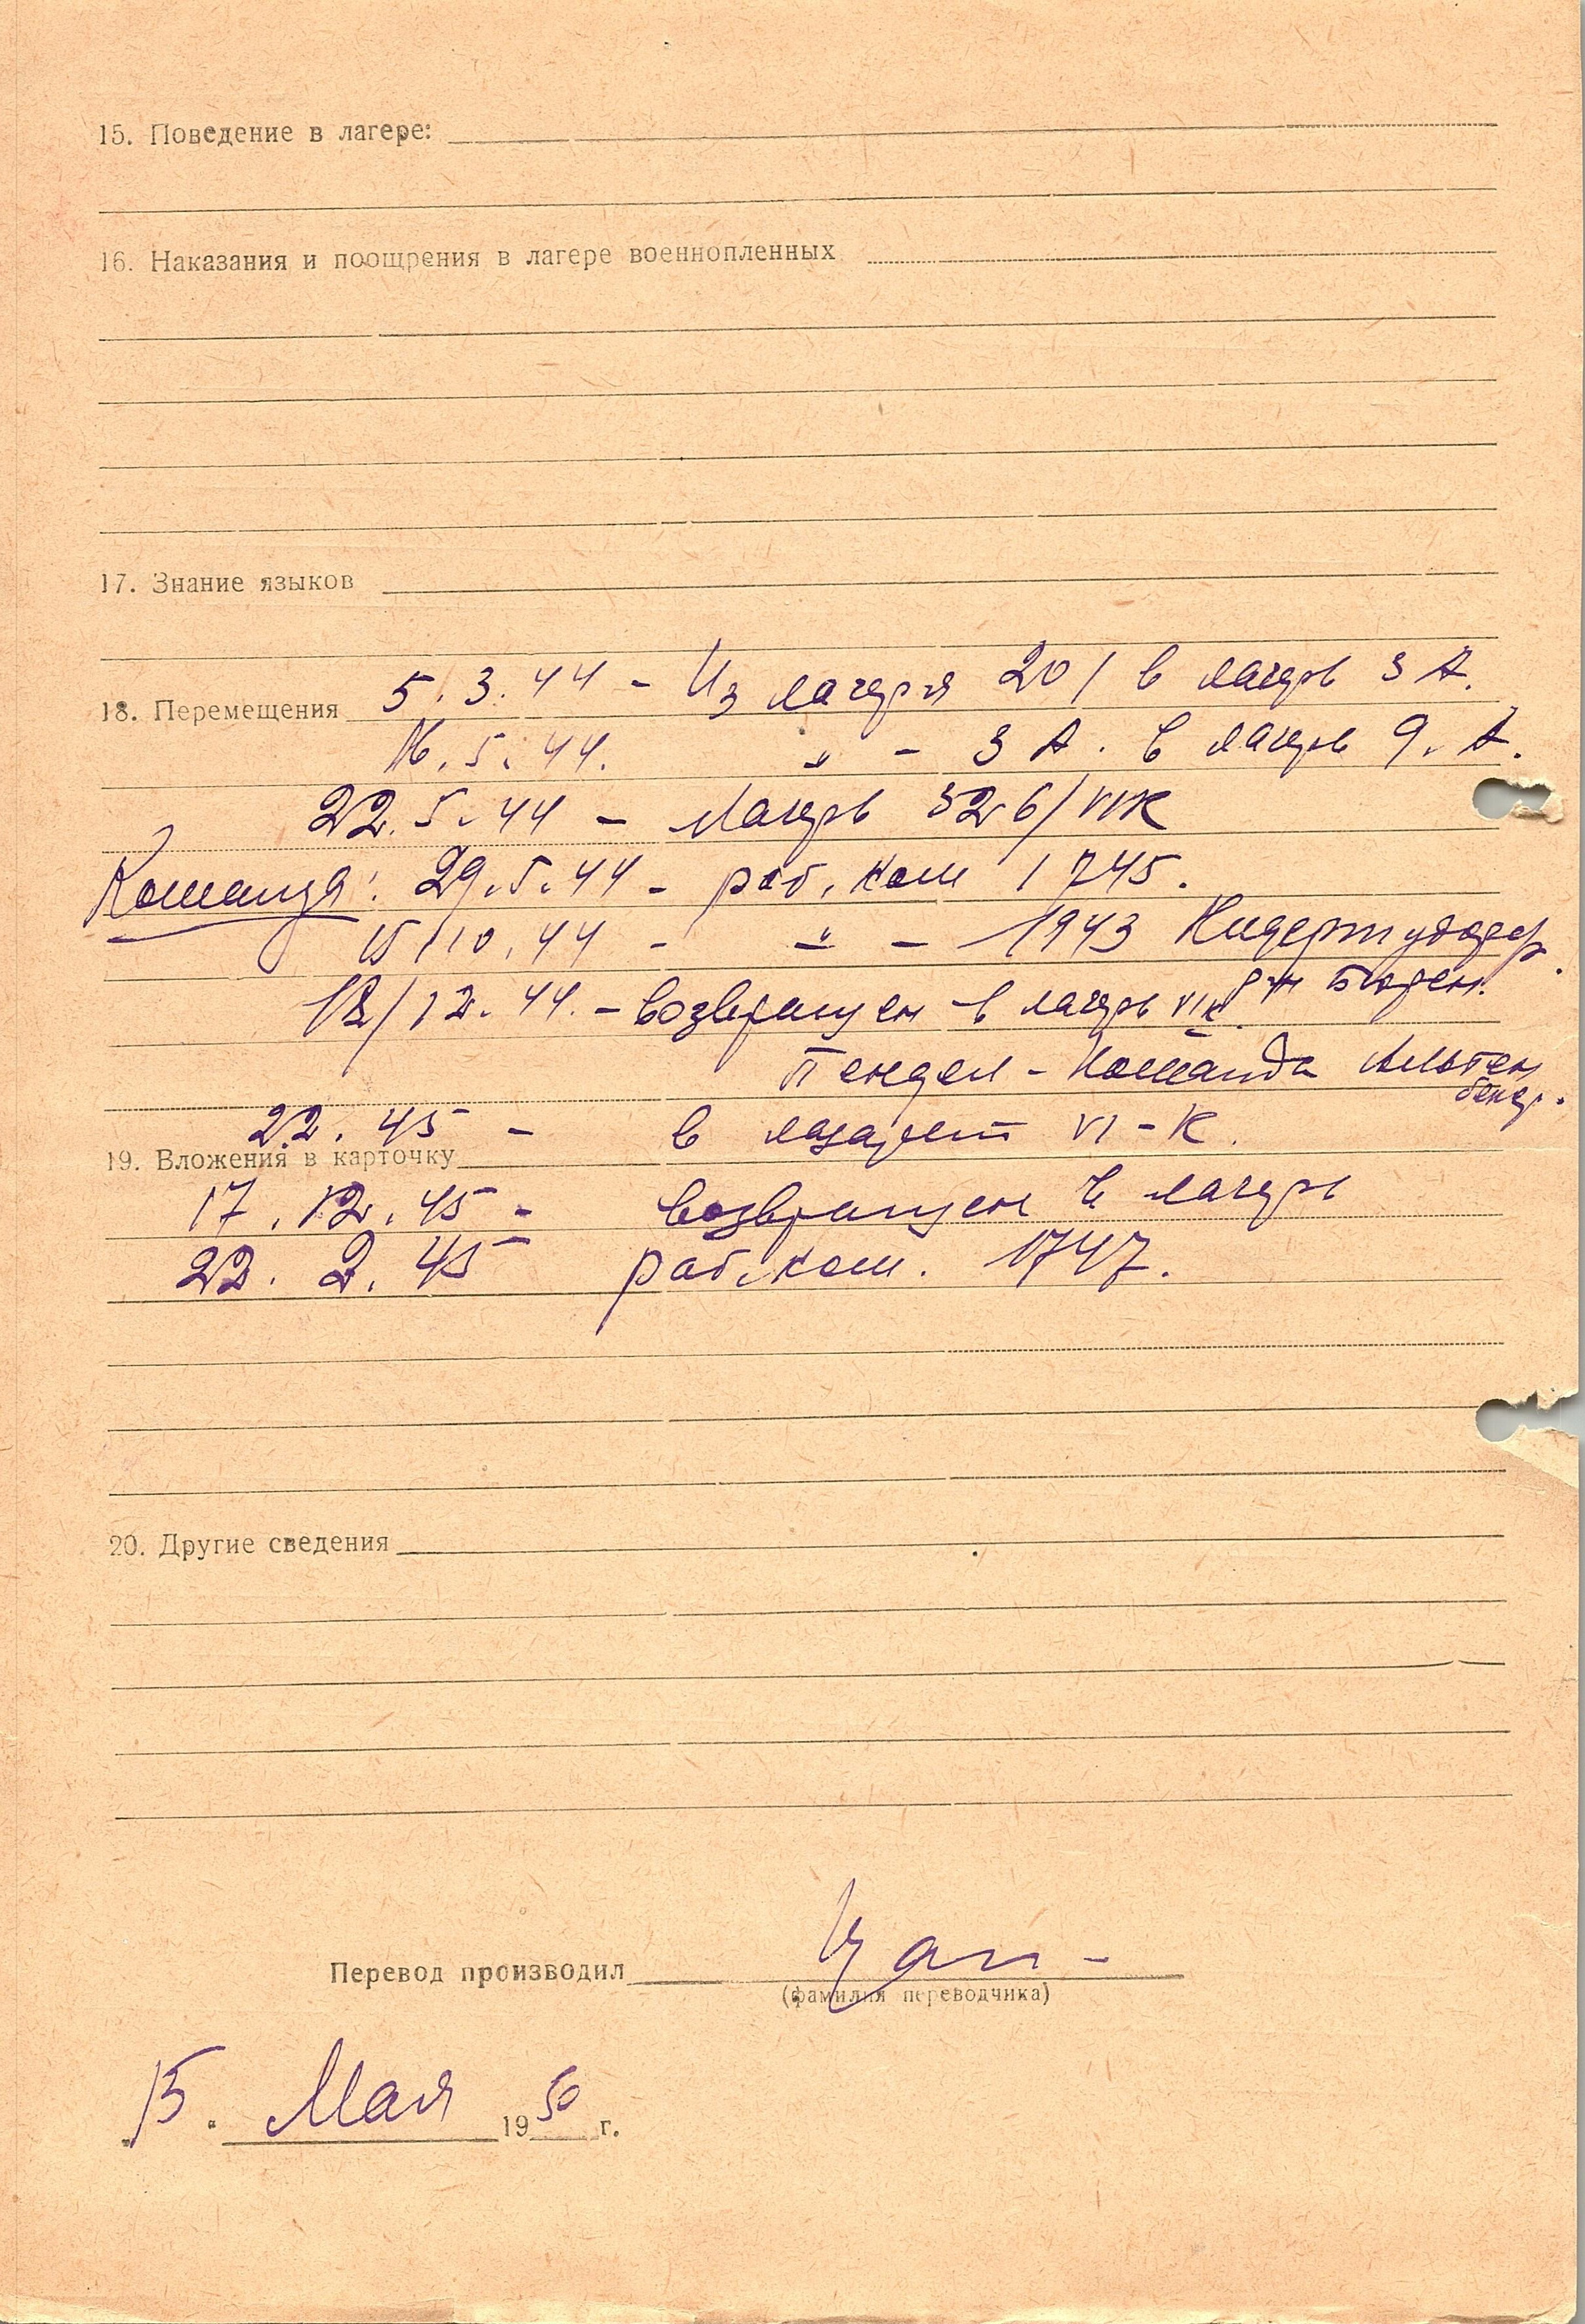 15. Поведение в лагере:
16. Наказания и поощрения в лагере военнопленных
17. Знание языков
5.3.44 - Из лагеря 201 в лагерь 3 А.
18. Перемещения
16.5.44. " - 3 А. в лагерь 9. А.
22.5.44 - Лагерь 326/VIK
Команда: 29.5.44 - раб. ком 1745.
15/10.44 - " - 1943 Нидертудорф.
р-н Бюрен.
12/12.44. - возвращен в лагерь VIK.
Пендел - Команда Альтен
бекен.
22.45 - в лазарет VI-К.
19. Вложения в карточку
17.12.45 - возвращен в лагерь
22.2.45 - раб. ком. 1747.
20. Другие сведения
Перевод производил
(фамилия переводчика)
15. Мая 1950 г.